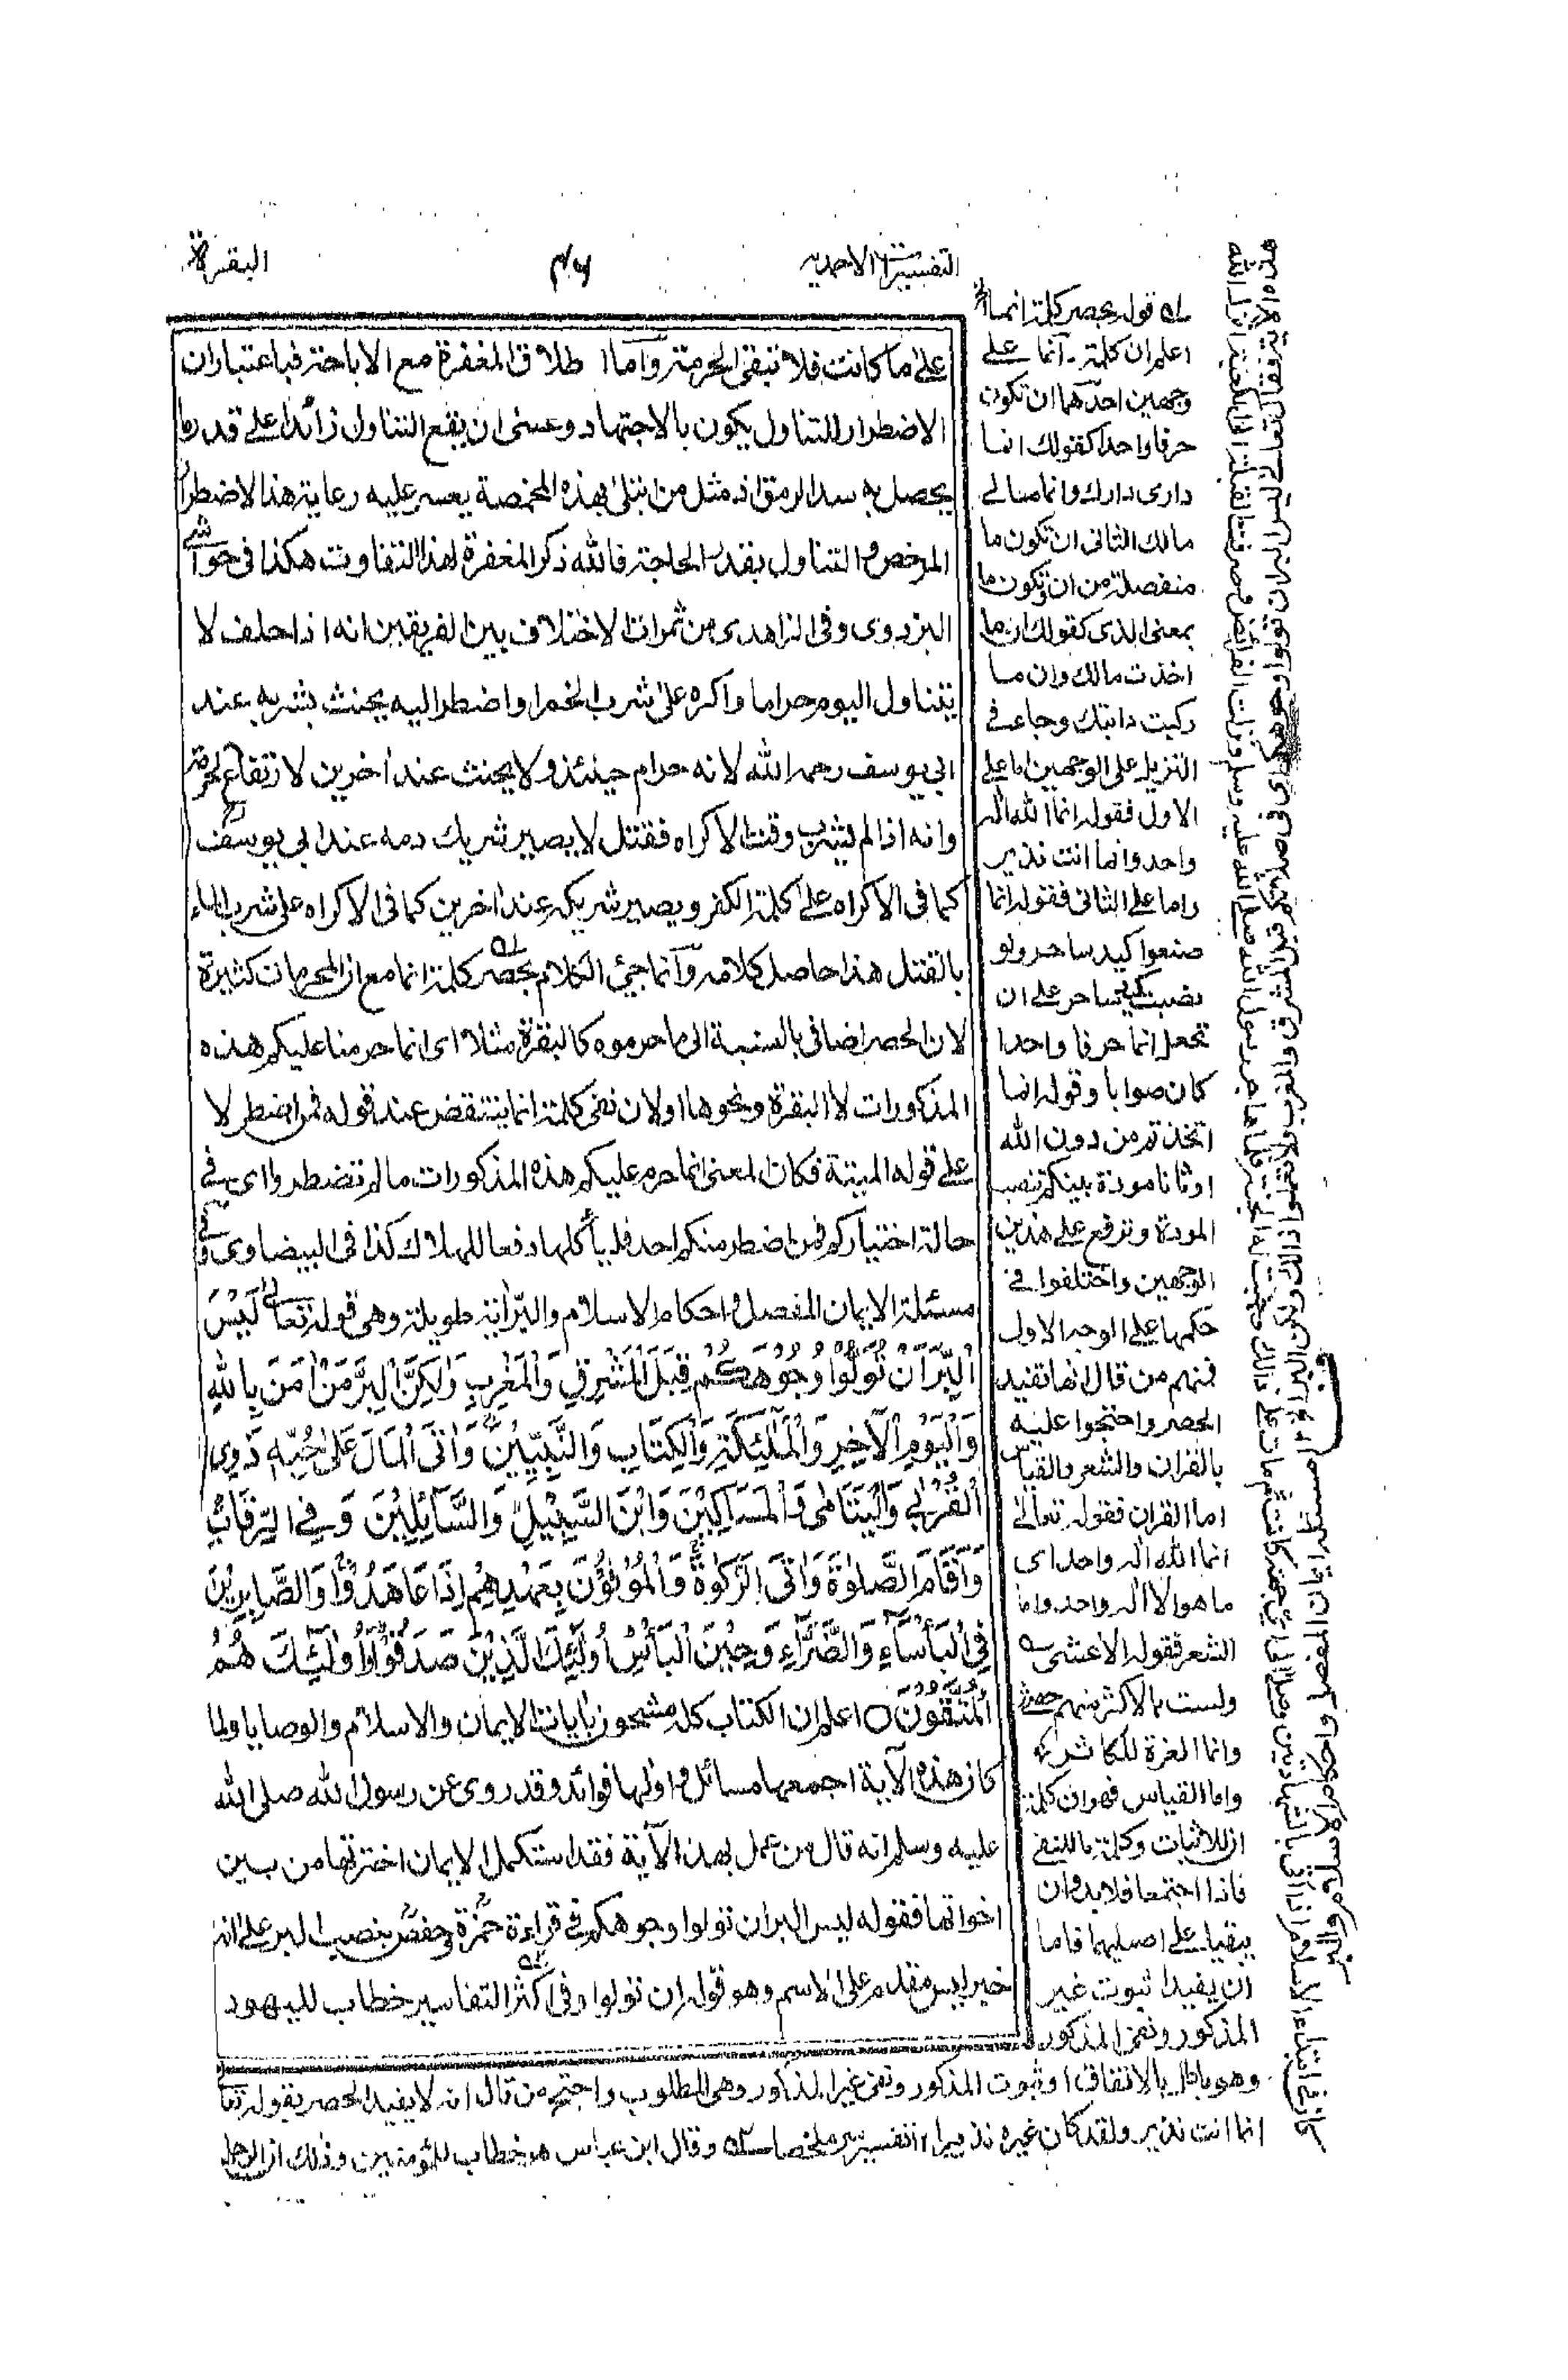 التفسيرات الاحمديه
٤٦
البقرة
على ما كانت فلا تبقى الحرمة وآما اطلاق المغفرة مع الاباحة فباعتباران
الاضطرار للتناول يكون بالاجتهاد وعسى ان يقع التناول زائدا على قدر ما
يحصل به سد الرمق اذ مثل من ابتلى بهذه المخمصة يعسر عليه رعاية هذا الاضطرار
المرخص والتناول بقدر الحاجة فالله ذكر المغفرة لهذا التفاوت هكذا فى حواشى
البزدوى وفى الزاهدى من ثمرات الاختلاف بين الفريقين انه اذا حلف لا
يتناول اليوم حراما واكره على شرب الخمر او اضطر اليه يحنث بشربه عند
ابى يوسف رحمه الله لانه حرام حينئذ ولا يحنث عند اخرين لارتفاع الحرمة
وانه اذا لم يشرب وقت الاكراه فقتل لا يصير شريك دمه عند ابى يوسف
كما فى الاكراه على كلمة الكفر ويصير شريكه عند اخرين كما فى الاكراه على شرب الماء
بالقتل هذا حاصل كلامه وآنما جئ الكلام بحصر كلمة انما مع ان المحرمات كثيرة
لان الحصر اضافى بالنسبة الى ما حرموه كالبقرة مثلا اى انما حرمنا عليكم هذه
المذكورات لا البقرة ونحوها اولان نفى كلمة انما ينتقض عند قوله فمن اضطر لا
على قوله الميتة فكان المعنى انما حرم عليكم هذه المذكورات ما لم تضطروا اى فى
حالة اختياركم فمن اضطر منكم احد فليأكلها دفعا للهلاك كذا فى البيضاوى وفى
مسئلة الايمان المفصل واحكام الاسلام والبر اية طويلة وهى قوله تعالى لَيْسَ
الْبِرَّ اَنْ تُوَلُّوْا وُجُوْهَكُمْ قِبَلَ الْمَشْرِقِ وَالْمَغْرِبِ وَلٰكِنَّ الْبِرَّ مَنْ اٰمَنَ بِاللهِ
وَالْيَوْمِ الْاٰخِرِ وَالْمَلٰئِكَةِ وَالْكِتَابِ وَالنَّبِيّيْنَ وَاٰتَى الْمَالَ عَلٰى حُبِّهٖ ذَوِى
الْقُرْبٰى وَالْيَتَامٰى وَالْمَسَاكِيْنَ وَابْنَ السَّبِيْلِ وَالسَّآئِلِيْنَ وَفِى الرِّقَابِ
وَاَقَامَ الصَّلٰوةَ وَاٰتَى الزَّكٰوةَ وَالْمُوْفُوْنَ بِعَهْدِهِمْ اِذَا عَاهَدُوْا وَالصَّابِرِيْنَ
فِى الْبَأْسَآءِ وَالضَّرَّآءِ وَحِيْنَ الْبَأْسِ اُولٰٓئِكَ الَّذِيْنَ صَدَقُوْا وَاُولٰٓئِكَ هُمُ
الْمُتَّقُوْنَ ○ اعلم ان الكتاب كله مشحون بايات الايمان والاسلام والوصايا ولما
كان هذه الآية اجمعها مسائل واولها فوائد وقد روى عن رسول الله صلى الله
عليه وسلم انه قال من عمل بهذه الآية فقد استكمل الايمان اخترتها من بين
اخواتها فقوله ليس البر ان تولوا وجوهكم فى قراءة حمزة وحفص بنصب البر على انه
خبر ليس مقدم على الاسم وهو قوله ان تولوا وفى اكثر التفاسير خطاب لليهود
له قوله بحصر كلمة انما
اعلم ان كلمة انما على
وجهين احدهما ان تكون
حرفا واحدا كقولك انما
دارى دارك وانما مالى
مالك الثانى ان تكون ما
منفصلة من ان وتكون ما
بمعنى الذى كقولك ان ما
اخذت مالك وان ما
ركبت دابتك وجاء فى
التنزيل على الوجهين اما على
الاول فقوله انما الله اله
واحد وانما انت نذير
واما على الثانى فقوله انما
صنعوا كيد ساحر ولو
نصب كيد ساحر على ان
تجعل انما حرفا واحدا
كان صوابا وقوله انما
اتخذتم من دون الله
اوثانا مودة بينكم تنصب
المودة وترفع على هذين
الوجهين واختلفوا فى
حكمها على الوجه الاول
فمنهم من قال انها تفيد
الحصر واحتجوا عليه
بالقران والشعر والقياس
اما القران فقوله تعالى
انما الله اله واحد اى
ما هو الا اله واحد واما
الشعر فقول الاعشى
ولست بالاكثر منهم حصى
وانما العزة للكاثر
واما القياس فهو ان كلمة
ان للاثبات وكلمة ما للنفى
فاذا اجتمعا فلا بد وان
يبقيا على اصليهما فاما
ان يفيدا ثبوت غير
المذكور ونفى المذكور
وهو باطل بالاتفاق او ثبوت المذكور ونفى غير المذكور وهو المطلوب واحتج من قال انه لا يفيد الحصر بقوله تعا
انما انت نذير ولقد كان غيره نذيرا ١٢ تفسير كبير ملخصا ٢ه وقال ابن عباس هو خطاب للمؤمنين وذلك ان الرجل
مسئلة الايمان المفصل واحكام الاسلام والبر